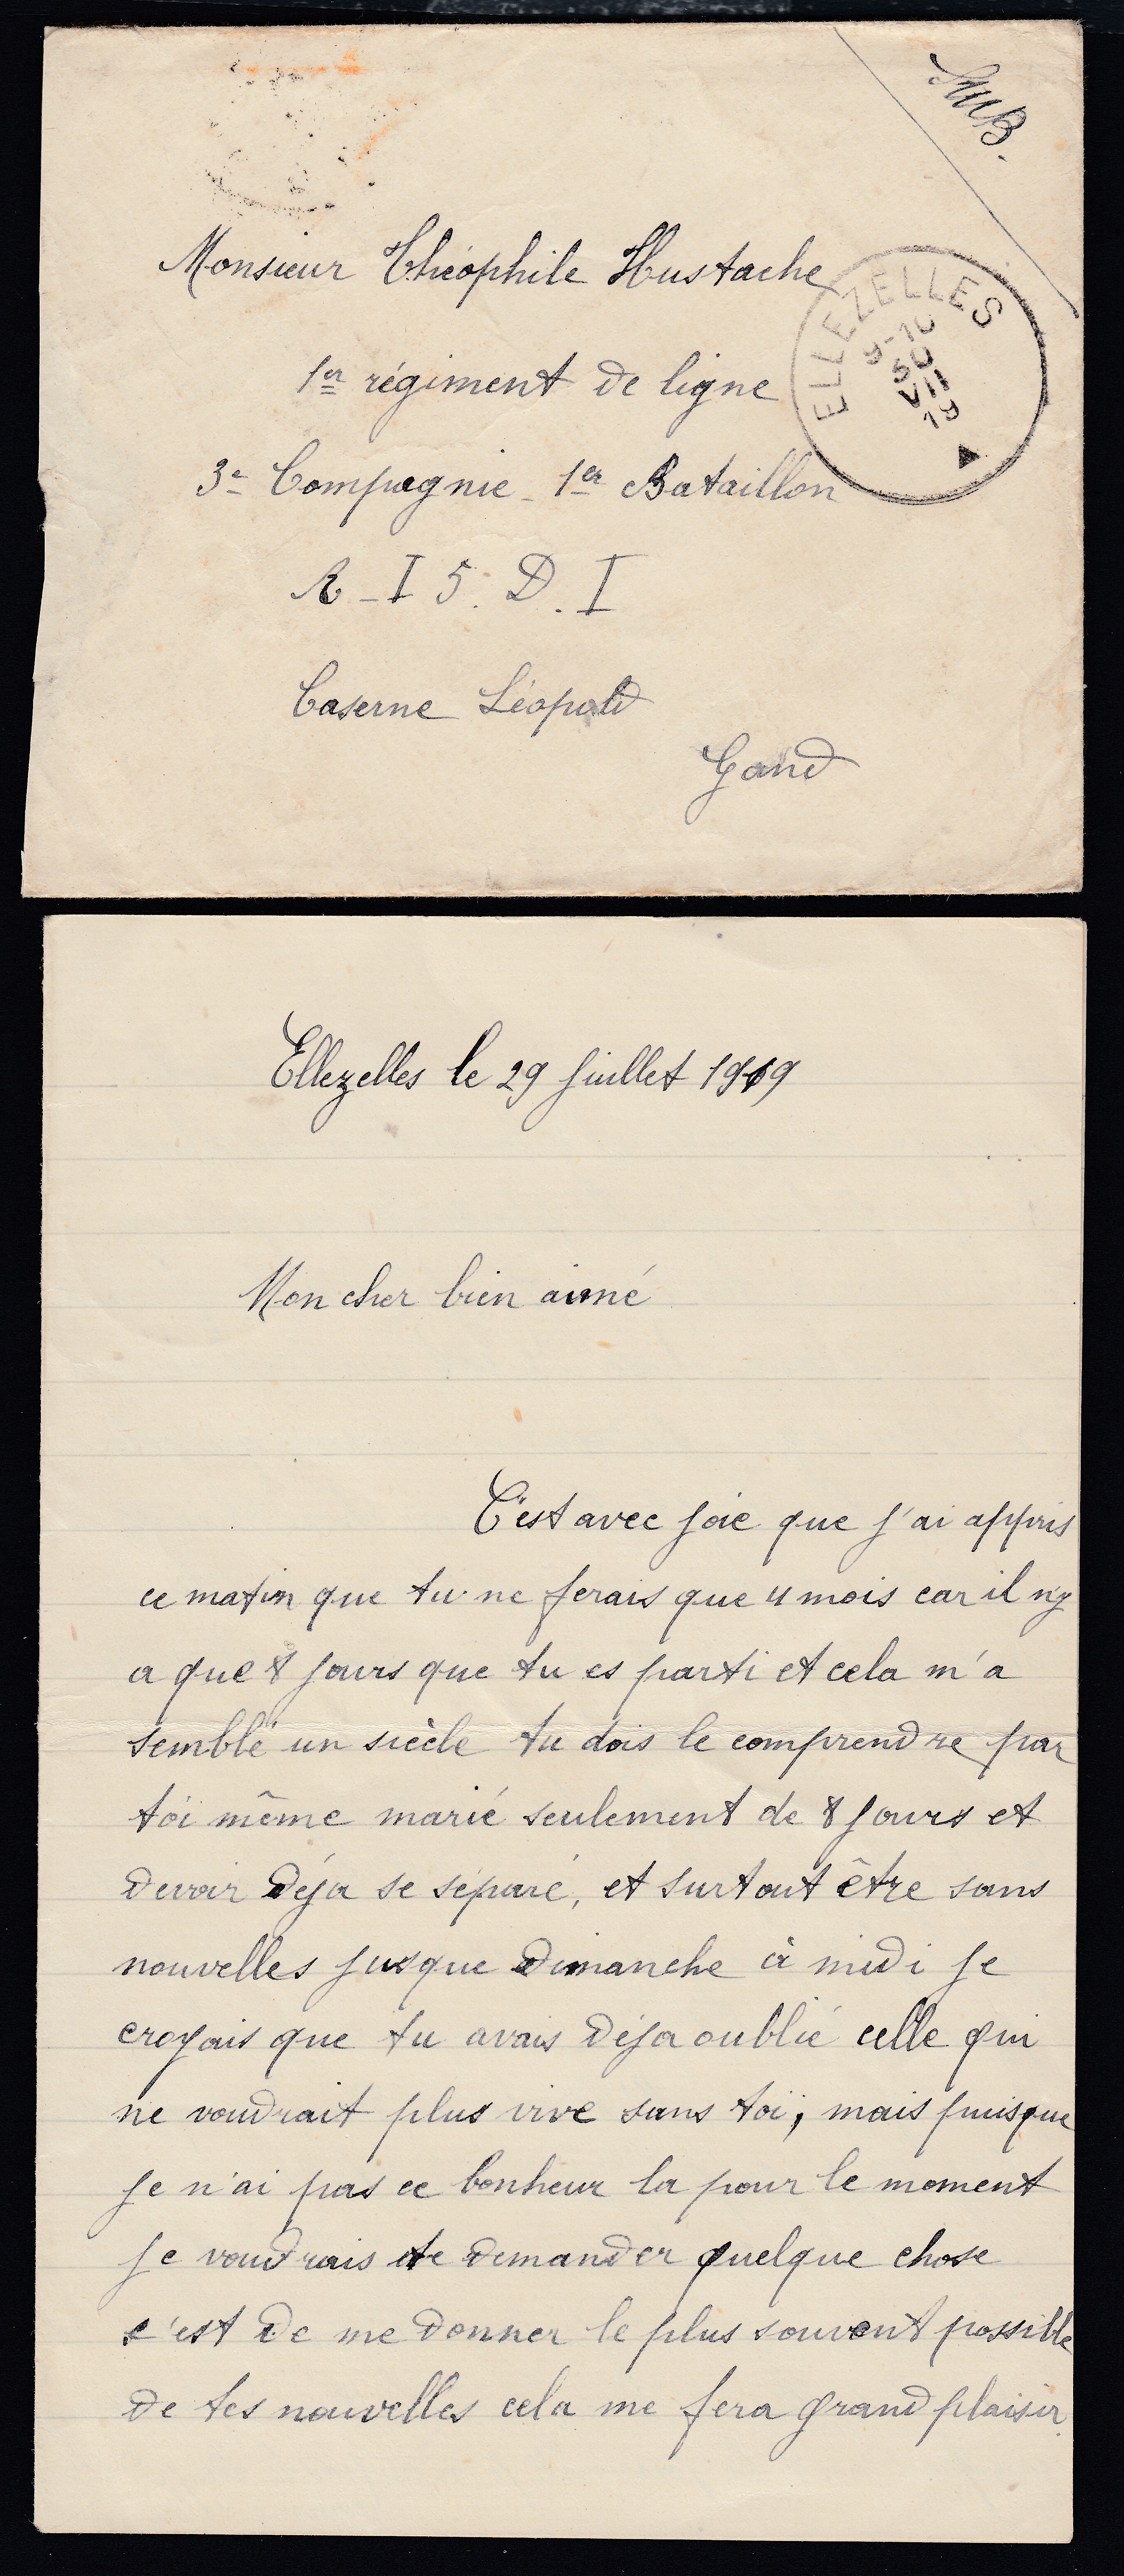 SMB.
Monsieur Théophile Hustache
ELLEZELLES
9-10
30
VII
19
1er régiment de ligne
3e Compagnie - 1er Bataillon
A - I 5. D. I
Caserne Léopold
Gand
Ellezelles le 29 Juillet 1919
Mon cher bien aimé
C'est avec joie que j'ai appris
ce matin que tu ne ferais que 4 mois car il n'y
a que 8 jours que tu es parti et cela m'a
semblé un siècle tu dois le comprendre par
toi même marié seulement de 8 jours et
devoir déja se séparé, et surtout être sans
nouvelles jusque dimanche à midi je
croyais que tu avais déja oublié celle qui
ne voudrait plus vive sans toi, mais puisque
je n'ai pas ce bonheur la pour le moment
je voudrais te demander quelque chose
c'est de me donner le plus souvent possible
de tes nouvelles cela me fera grand plaisir.